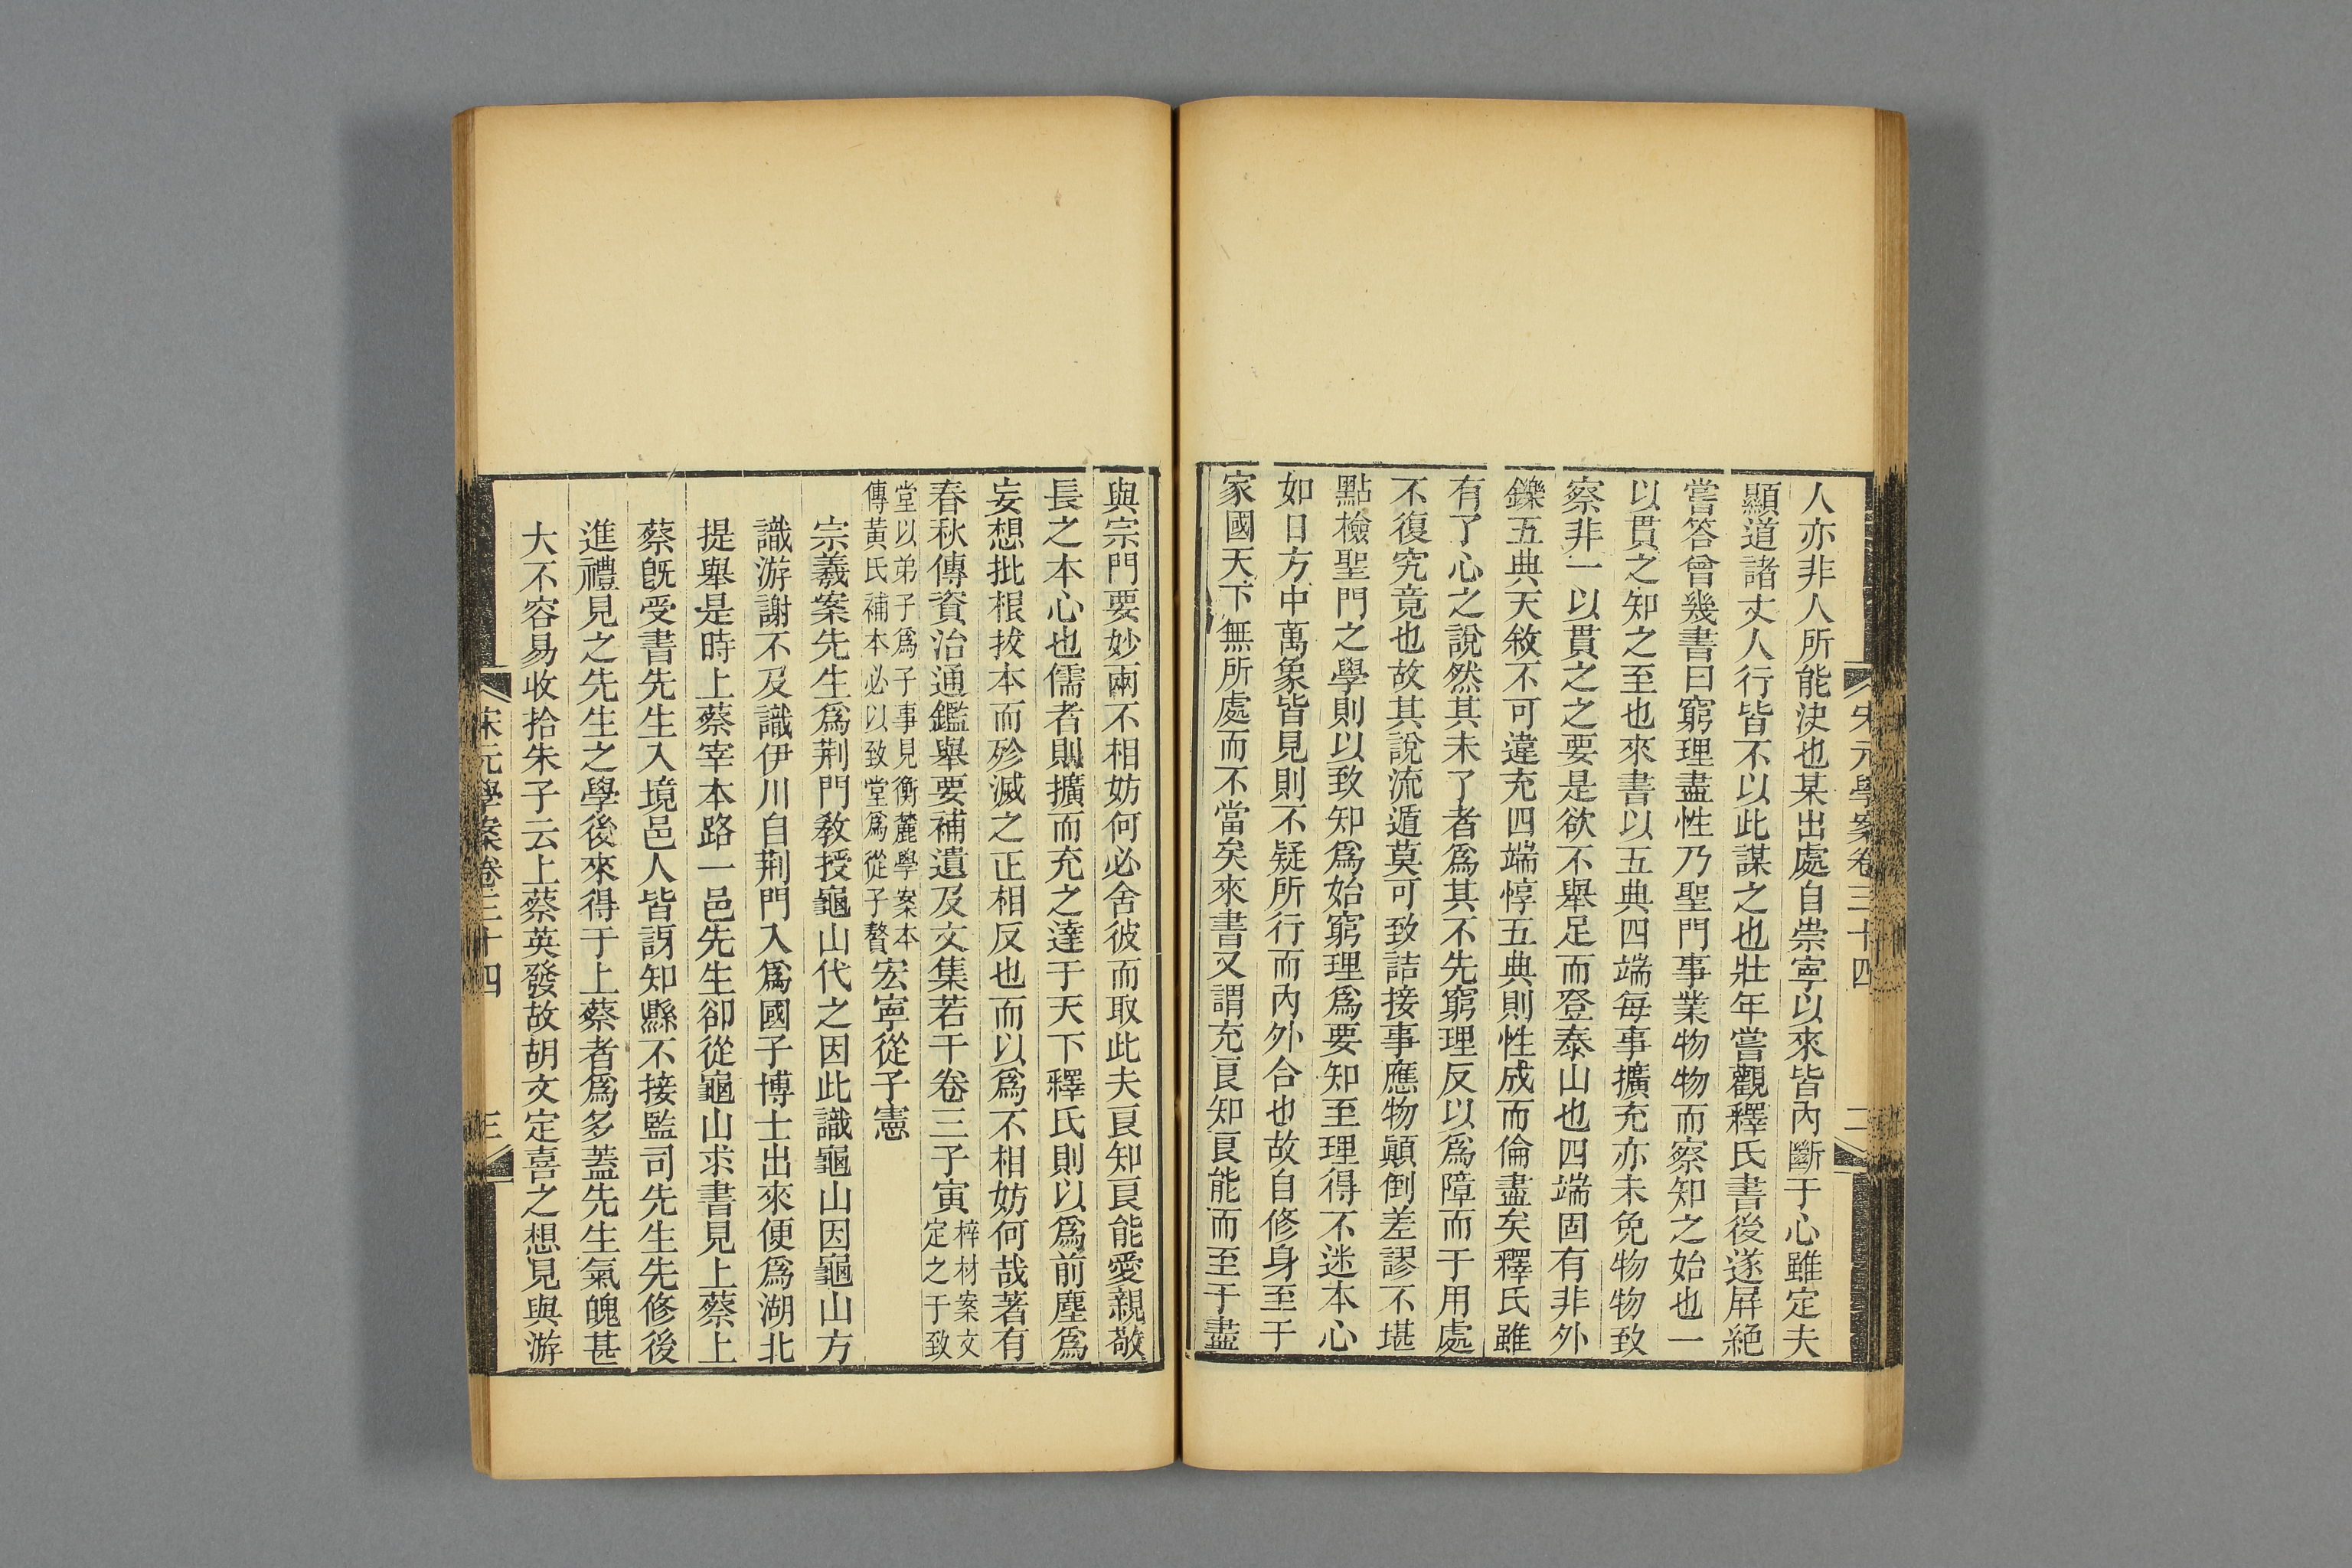 宋元學案卷三十四
二
人亦非人所能決也某出處自崇寧以來皆內斷于心雖定夫
顯道諸丈人行皆不以此謀之也壯年嘗觀釋氏書後遂屏絕
嘗答曾幾書曰窮理盡性乃聖門事業物物而察知之始也一
以貫之知之至也來書以五典四端每事擴充亦未免物物致
察非一以貫之之要是欲不舉足而登泰山也四端固有非外
鑠五典天敘不可違充四端惇五典則性成而倫盡矣釋氏雖
有了心之說然其未了者爲其不先窮理反以爲障而于用處
不復究竟也故其說流遁莫可致詰接事應物顛倒差謬不堪
點檢聖門之學則以致知爲始窮理爲要知至理得不迷本心
如日方中萬象皆見則不疑所行而內外合也故自修身至于
家國天下無所處而不當矣來書又謂充良知良能而至于盡
與宗門要妙兩不相妨何必舍彼而取此夫良知良能愛親敬
長之本心也儒者則擴而充之達于天下釋氏則以爲前塵爲
妄想批根拔本而殄滅之正相反也而以爲不相妨何哉著有
春秋傳資治通鑑舉要補遺及文集若干卷三子寅梓材案文定之于致
堂以弟子爲子事見衡麓學案本傳黃氏補本必以致堂爲從子贅宏寧從子憲
宗羲案先生爲荆門教授龜山代之因此識龜山因龜山方
識游謝不及識伊川自荆門入爲國子博士出來便爲湖北
提舉是時上蔡宰本路一邑先生卻從龜山求書見上蔡上
蔡既受書先生入境邑人皆訝知縣不接監司先生先修後
進禮見之先生之學後來得于上蔡者爲多蓋先生氣魄甚
大不容易收拾朱子云上蔡英發故胡文定喜之想見與游
宋元學案卷三十四
三